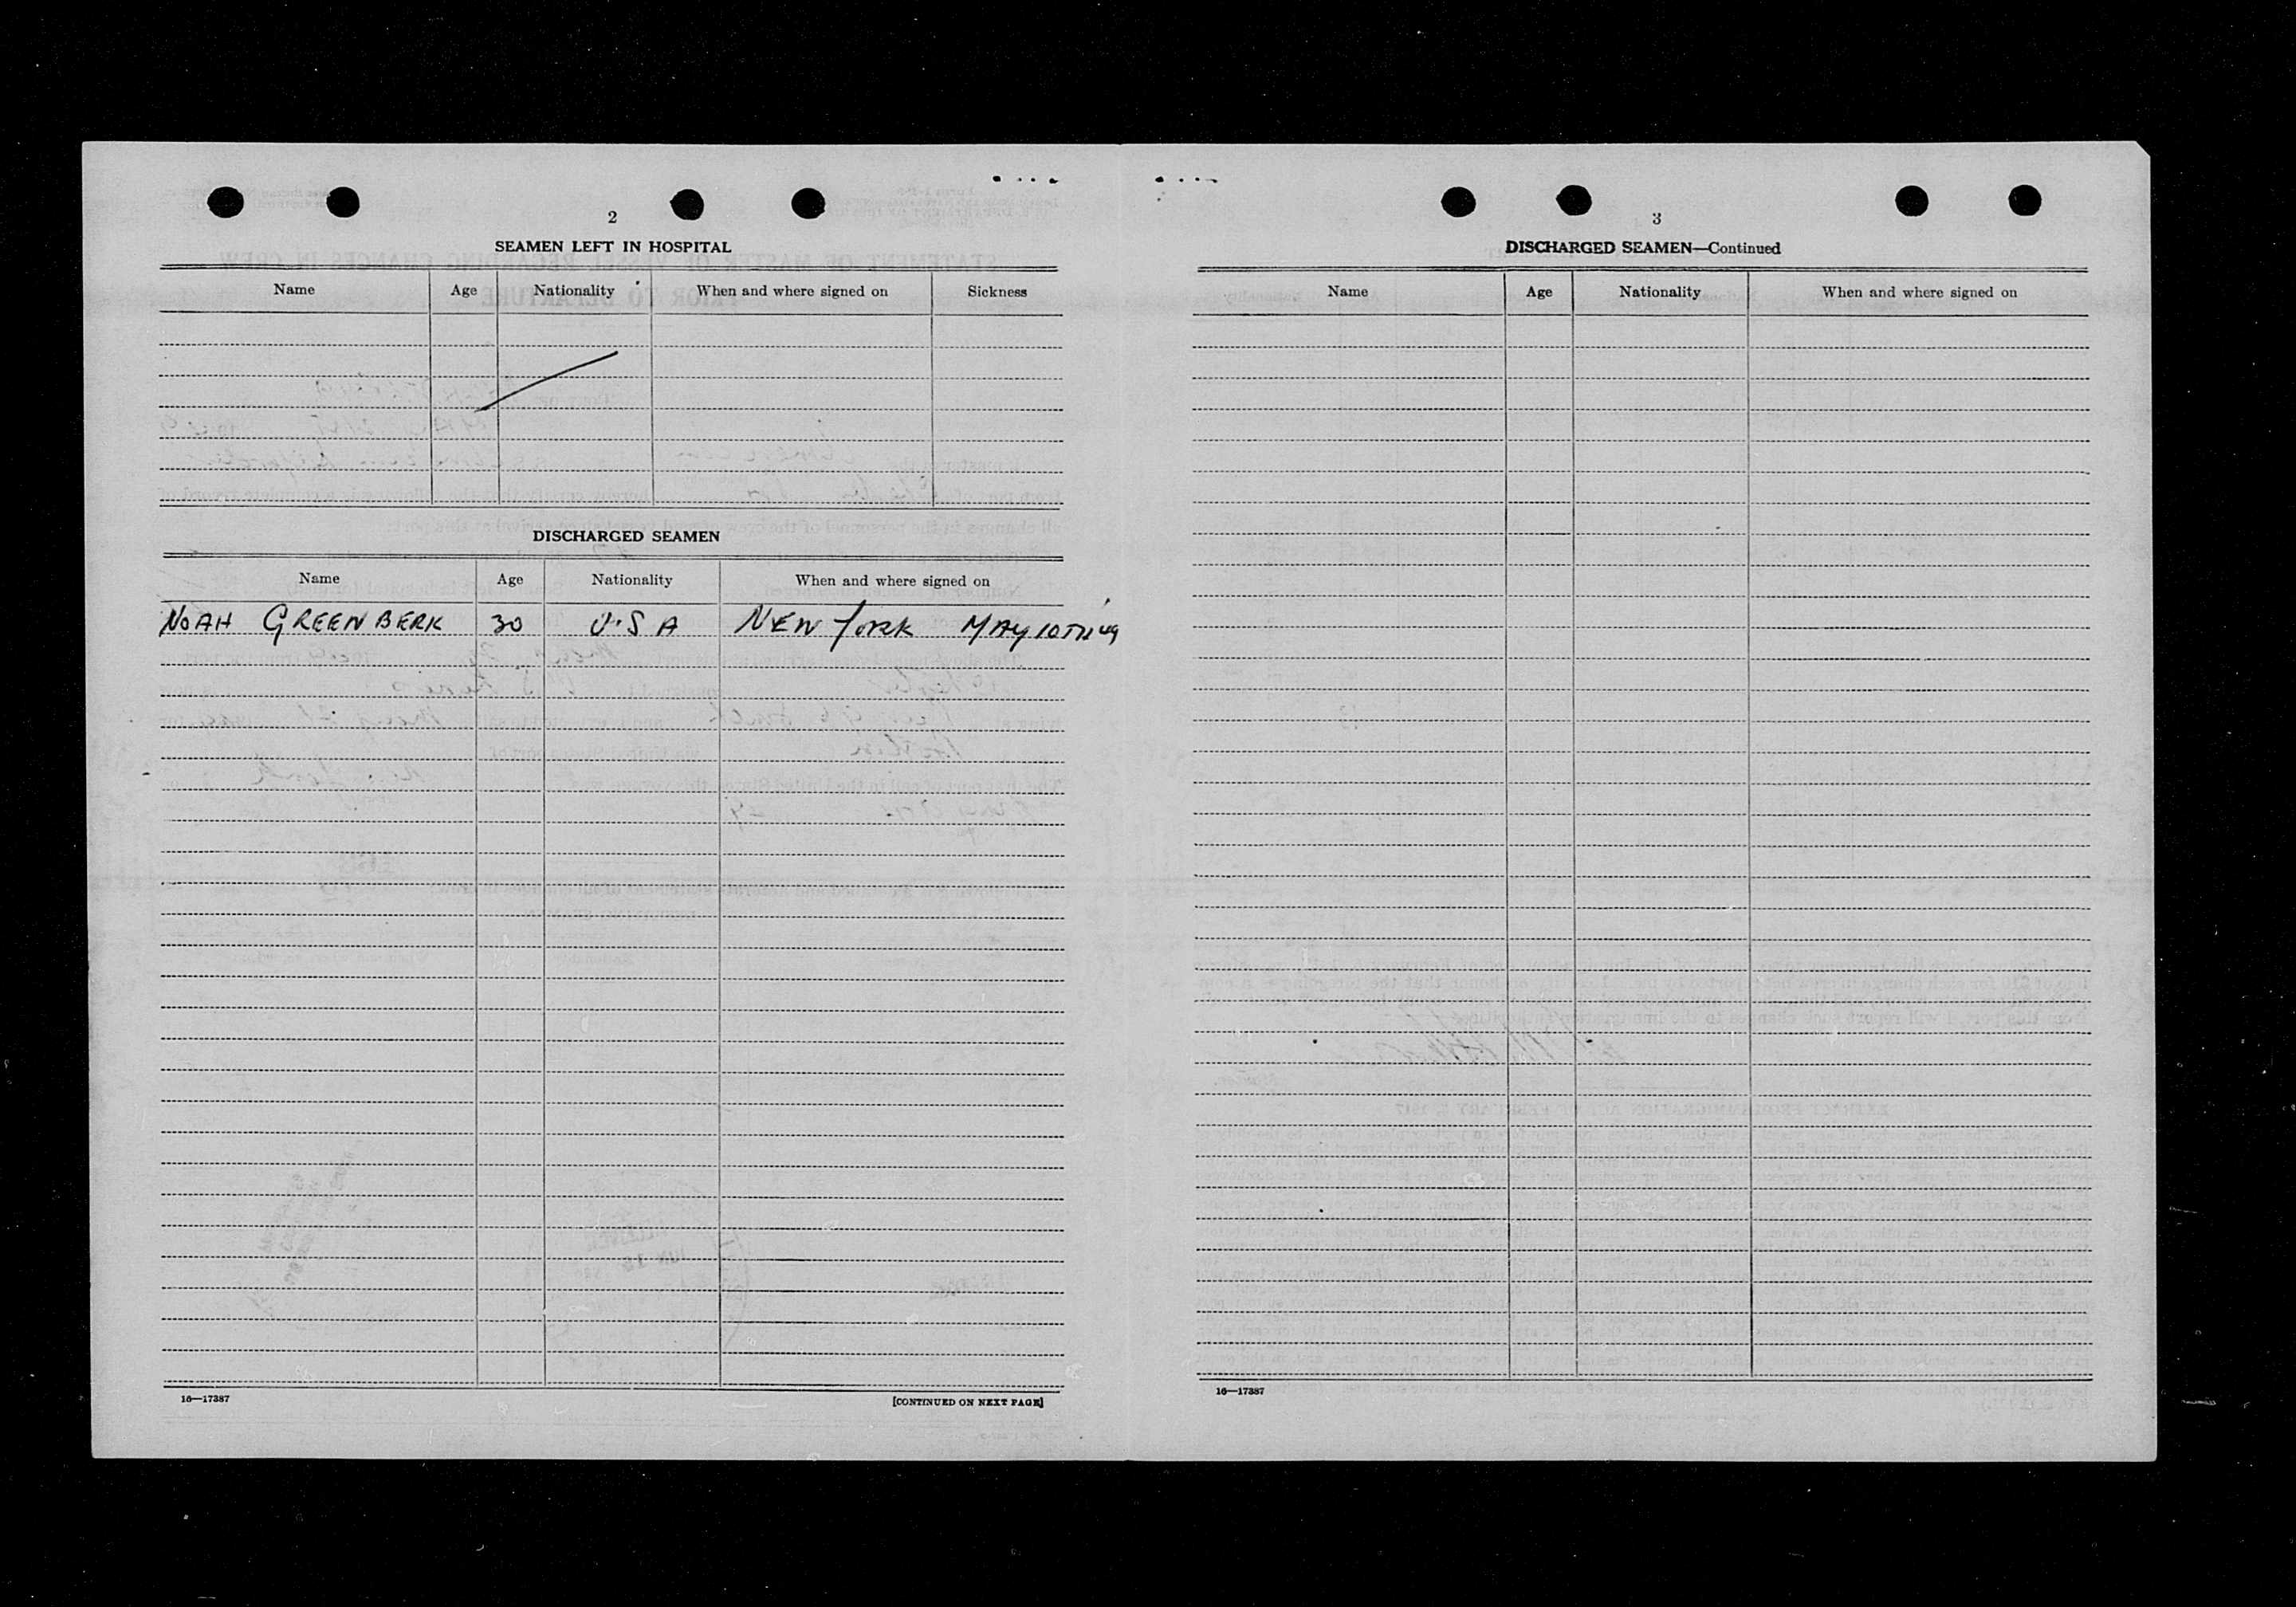 2
SEAMEN LEFT IN HOSPITAL
Name Age Nationality When and where signed on Sickness
DISCHARGED SEAMEN
Name Age Nationality When and where signed on
NOAH GREENBERK 30 U.S A NEW YORK MAY 10TH 49
16—17387 [CONTINUED ON NEXT PAGE]
3
DISCHARGED SEAMEN—Continued
Name Age Nationality When and where signed on
16—17387